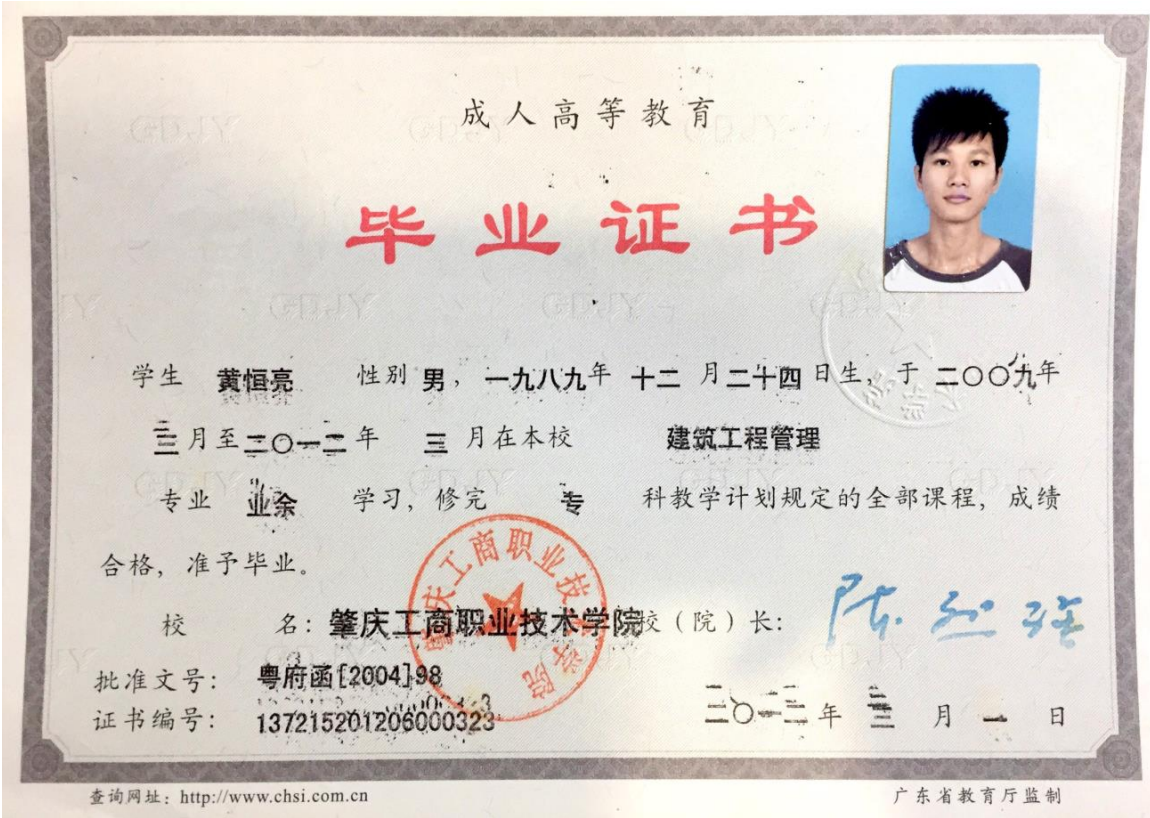 成人高等教育
毕业证书
学生 黄恒亮 性别 男，一九八九年 十二 月二十四日生，于 二〇〇九年
三月至二〇一二年 三 月在本校 建筑工程管理
专业 业余 学习，修完 专 科教学计划规定的全部课程，成绩
合格，准予毕业。
肇庆工商职业技术学院
校 名：肇庆工商职业技术学院校（院）长：
批准文号：粤府函[2004]98
证书编号：137215201206000323
年 月 一 日
查询网址：http://www.chsi.com.cn
广东省教育厅监制
GDJY